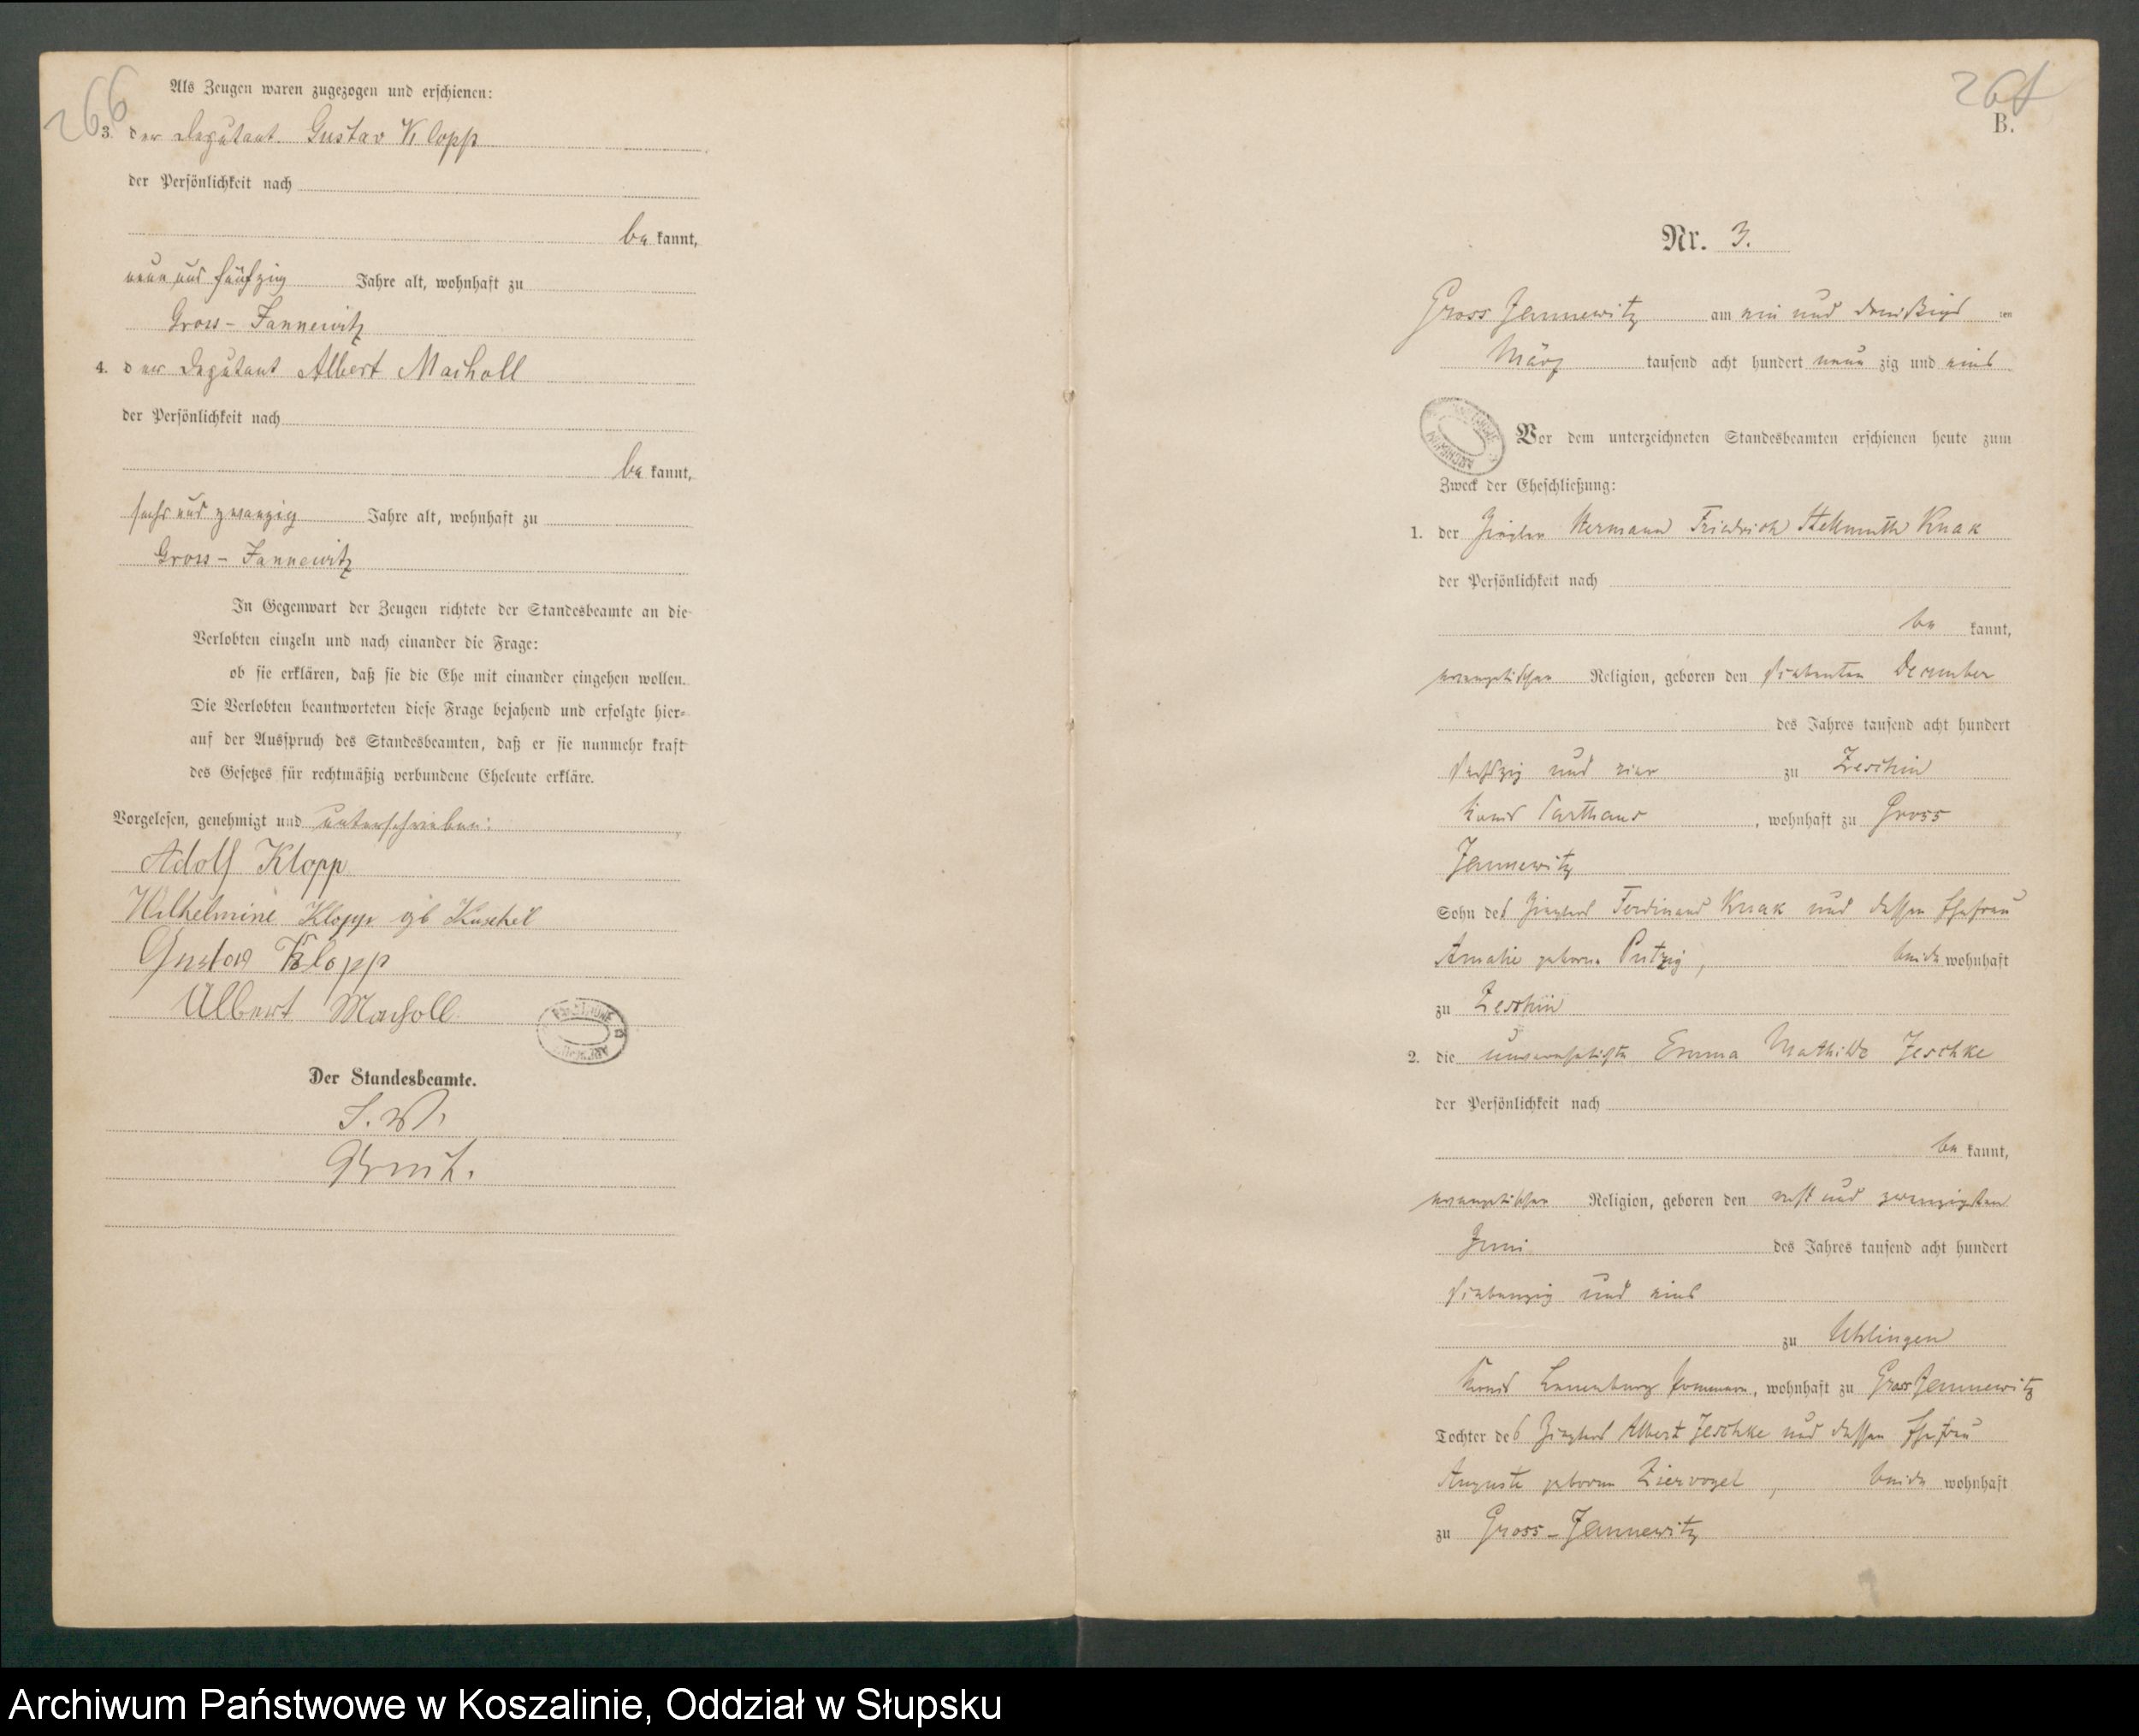 266
Als Zeugen waren zugezogen und erschienen:
3. der Deputant Gustav Klopp
der Persönlichkeit nach
be kannt,
neun und fünfzig Jahre alt, wohnhaft zu
Gross-Jannewitz
4. der Deputant Albert Macholl
der Persönlichkeit nach
be kannt,
sechs und zwanzig Jahre alt, wohnhaft zu
Gross-Jannewitz
In Gegenwart der Zeugen richtete der Standesbeamte an die
Verlobten einzeln und nach einander die Frage:
ob sie erklären, daß sie die Ehe mit einander eingehen wollen.
Die Verlobten beantworteten diese Frage bejahend und erfolgte hier-
auf der Ausspruch des Standesbeamten, daß er sie nunmehr kraft
des Gesetzes für rechtmäßig verbundene Eheleute erkläre.
Vorgelesen, genehmigt und unterschrieben:
Adolf Klopp
Wilhelmine Klopp gb Kuschel
Gustav Klopp
Albert Macholl
Der Standesbeamte.
B.
Nr. 3.
Gross Jannewitz am ein und dreißigs ten
März tausend acht hundert neun zig und eins
Vor dem unterzeichneten Standesbeamten erschienen heute zum
Zweck der Eheschließung:
1. der Ziegler Hermann Friedrich Hellmuth Knak
der Persönlichkeit nach
be kannt,
evangelischer Religion, geboren den siebenten December
des Jahres tausend acht hundert
sechszig und vier zu Zeschin
Kreis Carthaus, wohnhaft zu Gross
Jannewitz
Sohn des Zieglers Ferdinand Knak und dessen Ehefrau
Amalie geborne Putzig, beide wohnhaft
zu Zeschin
2. die unverehelichte Emma Mathilde Jeschke
der Persönlichkeit nach
be kannt,
evangelischer Religion, geboren den acht und zwanzigsten
Juni des Jahres tausend acht hundert
siebenzig und eins
zu Uhlingen
Kreis Lauenburg Pommern, wohnhaft zu Gross Jannewitz
Tochter des Zieglers Albert Jeschke und dessen Ehefrau
Auguste geborne Ziervogel, beide wohnhaft
zu Gross-Jannewitz
Archiwum Państwowe w Koszalinie, Oddział w Słupsku